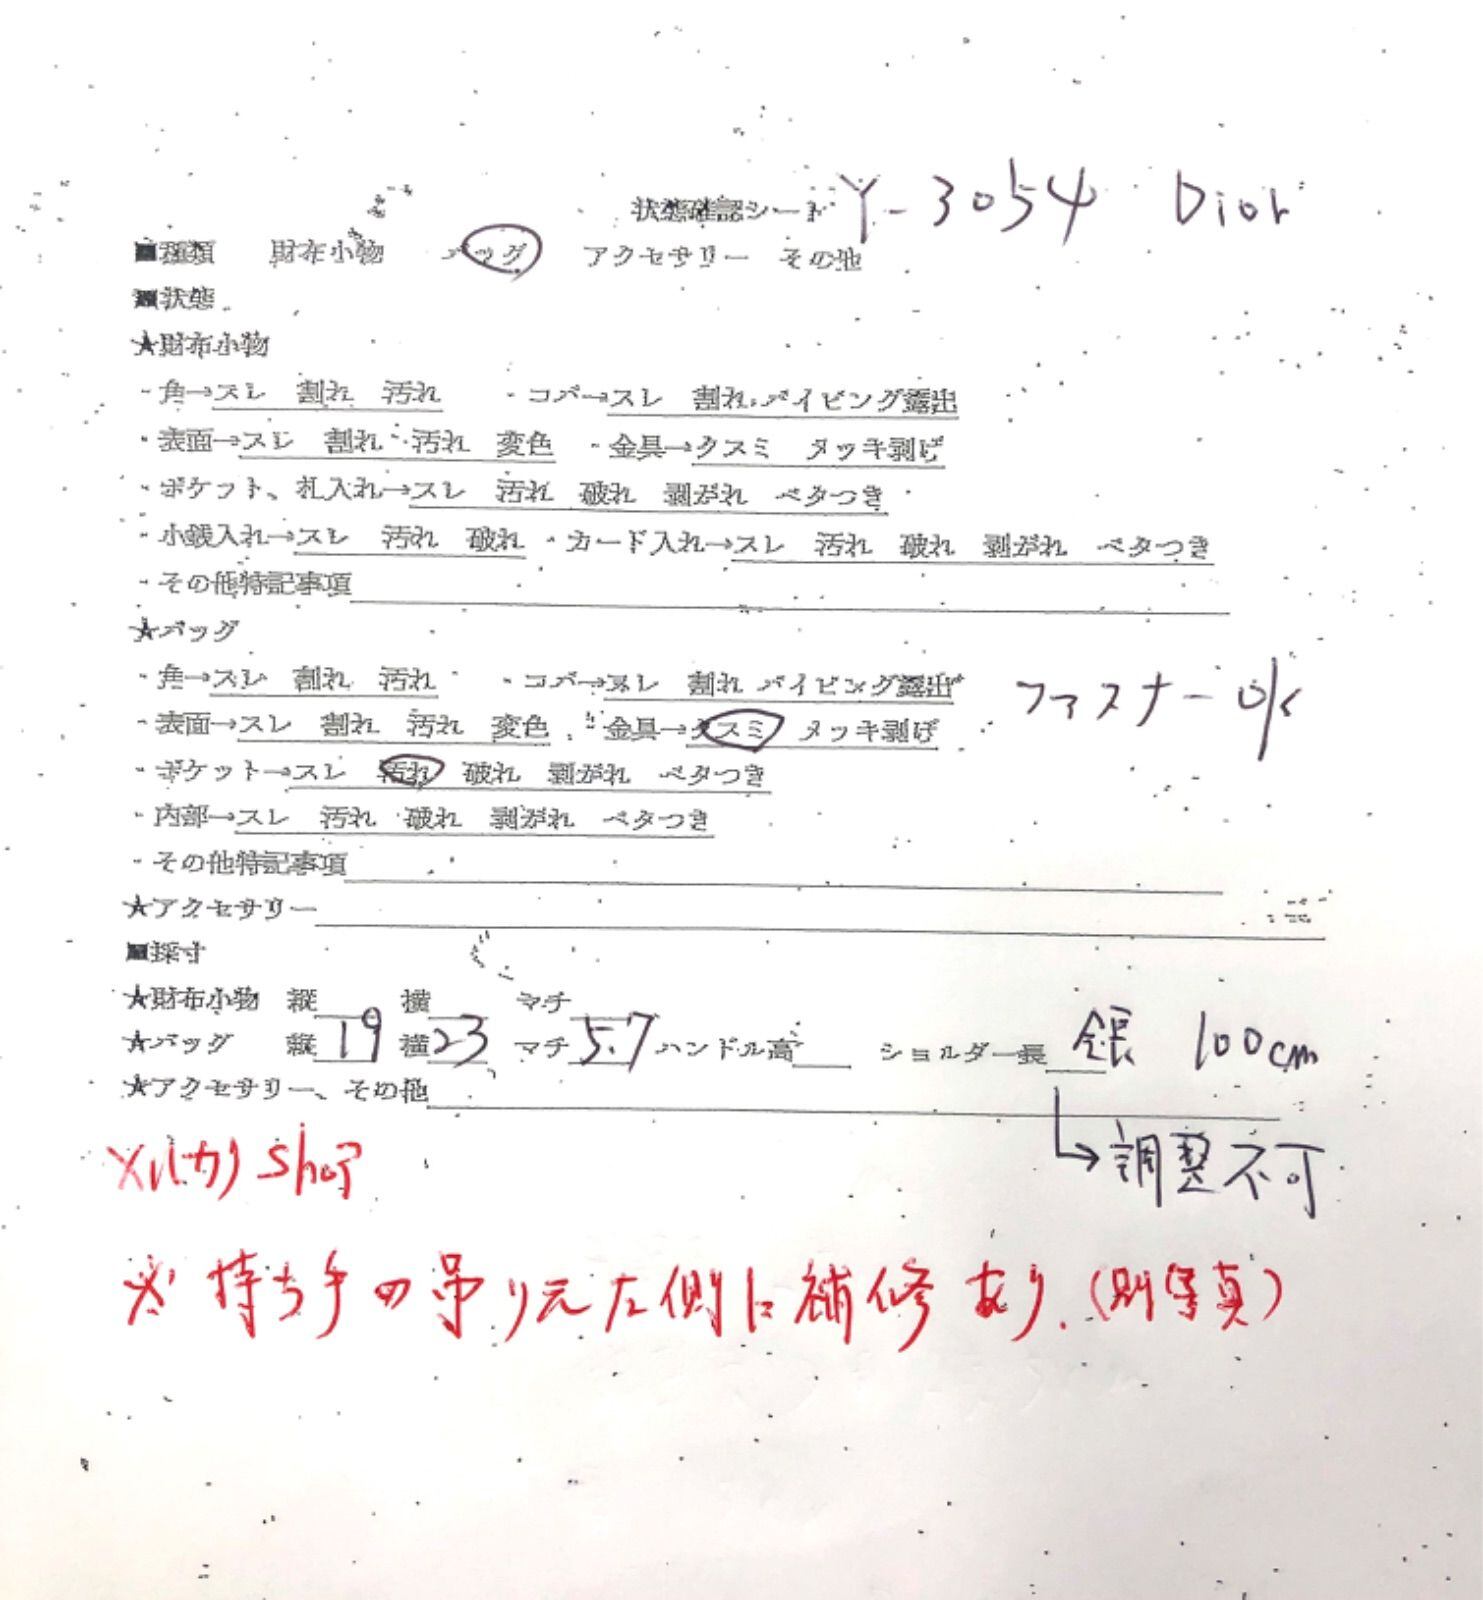 状態確認シート Y-3054 Dior
■種類 財布小物 バッグ アクセサリー その他
■状態
★財布小物
・角→スレ 割れ 汚れ ・コバ→スレ 割れ パイピング露出
・表面→スレ 割れ 汚れ 変色 ・金具→クスミ メッキ剥げ
・ポケット、札入れ→スレ 汚れ 破れ 剥がれ ベタつき
・小銭入れ→スレ 汚れ 破れ ・カード入れ→スレ 汚れ 破れ 剥がれ ベタつき
・その他特記事項
★バッグ
・角→スレ 割れ 汚れ ・コバ→スレ 割れ パイピング露出 ファスナーOK
・表面→スレ 割れ 汚れ 変色 ・金具→クスミ メッキ剥げ
・ポケット→スレ 汚れ 破れ 剥がれ ベタつき
・内部→スレ 汚れ 破れ 剥がれ ベタつき
・その他特記事項
★アクセサリー
■採寸
★財布小物 縦 横 マチ
★バッグ 縦 19 横 23 マチ 5.7 ハンドル高 ショルダー長 全長 100cm
★アクセサリー、その他
↳調整不可
メルカリ shop
※持ち手の吊り元左側に補修あり.(別写真)